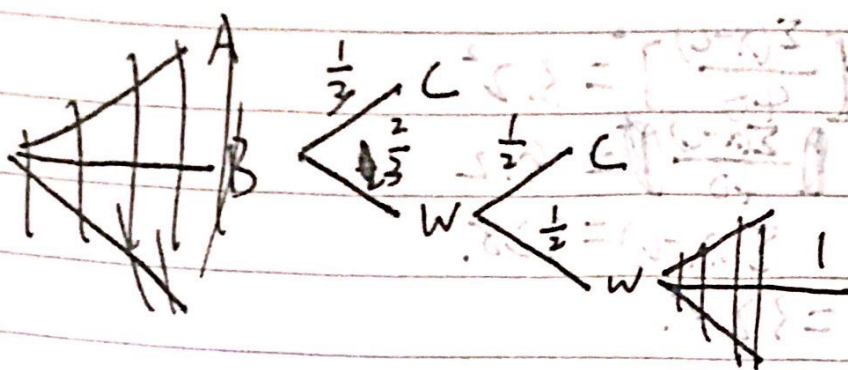 A
B
1/3 C
2/3 W
1/2 C
1/2 W
1